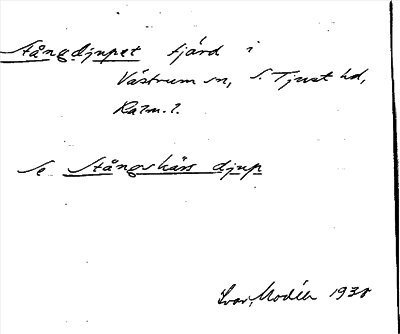 Stångdjupet fjärd i
Västrum sn, S. Tjust hd,
Kalm. l.
Se Stångskärs djup
Ivar Modéer 1930